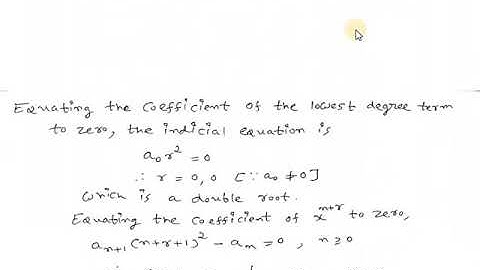 Equating the coefficient of the lowest degree term
to zero, the indicial equation is
a₀r² = 0
∴ r = 0, 0 [∵ a₀ ≠ 0]
which is a double root.
Equating the coefficient of xⁿ⁺ʳ to zero,
aₙ₊₁(n+r+1)² - aₙ = 0, n ≥ 0